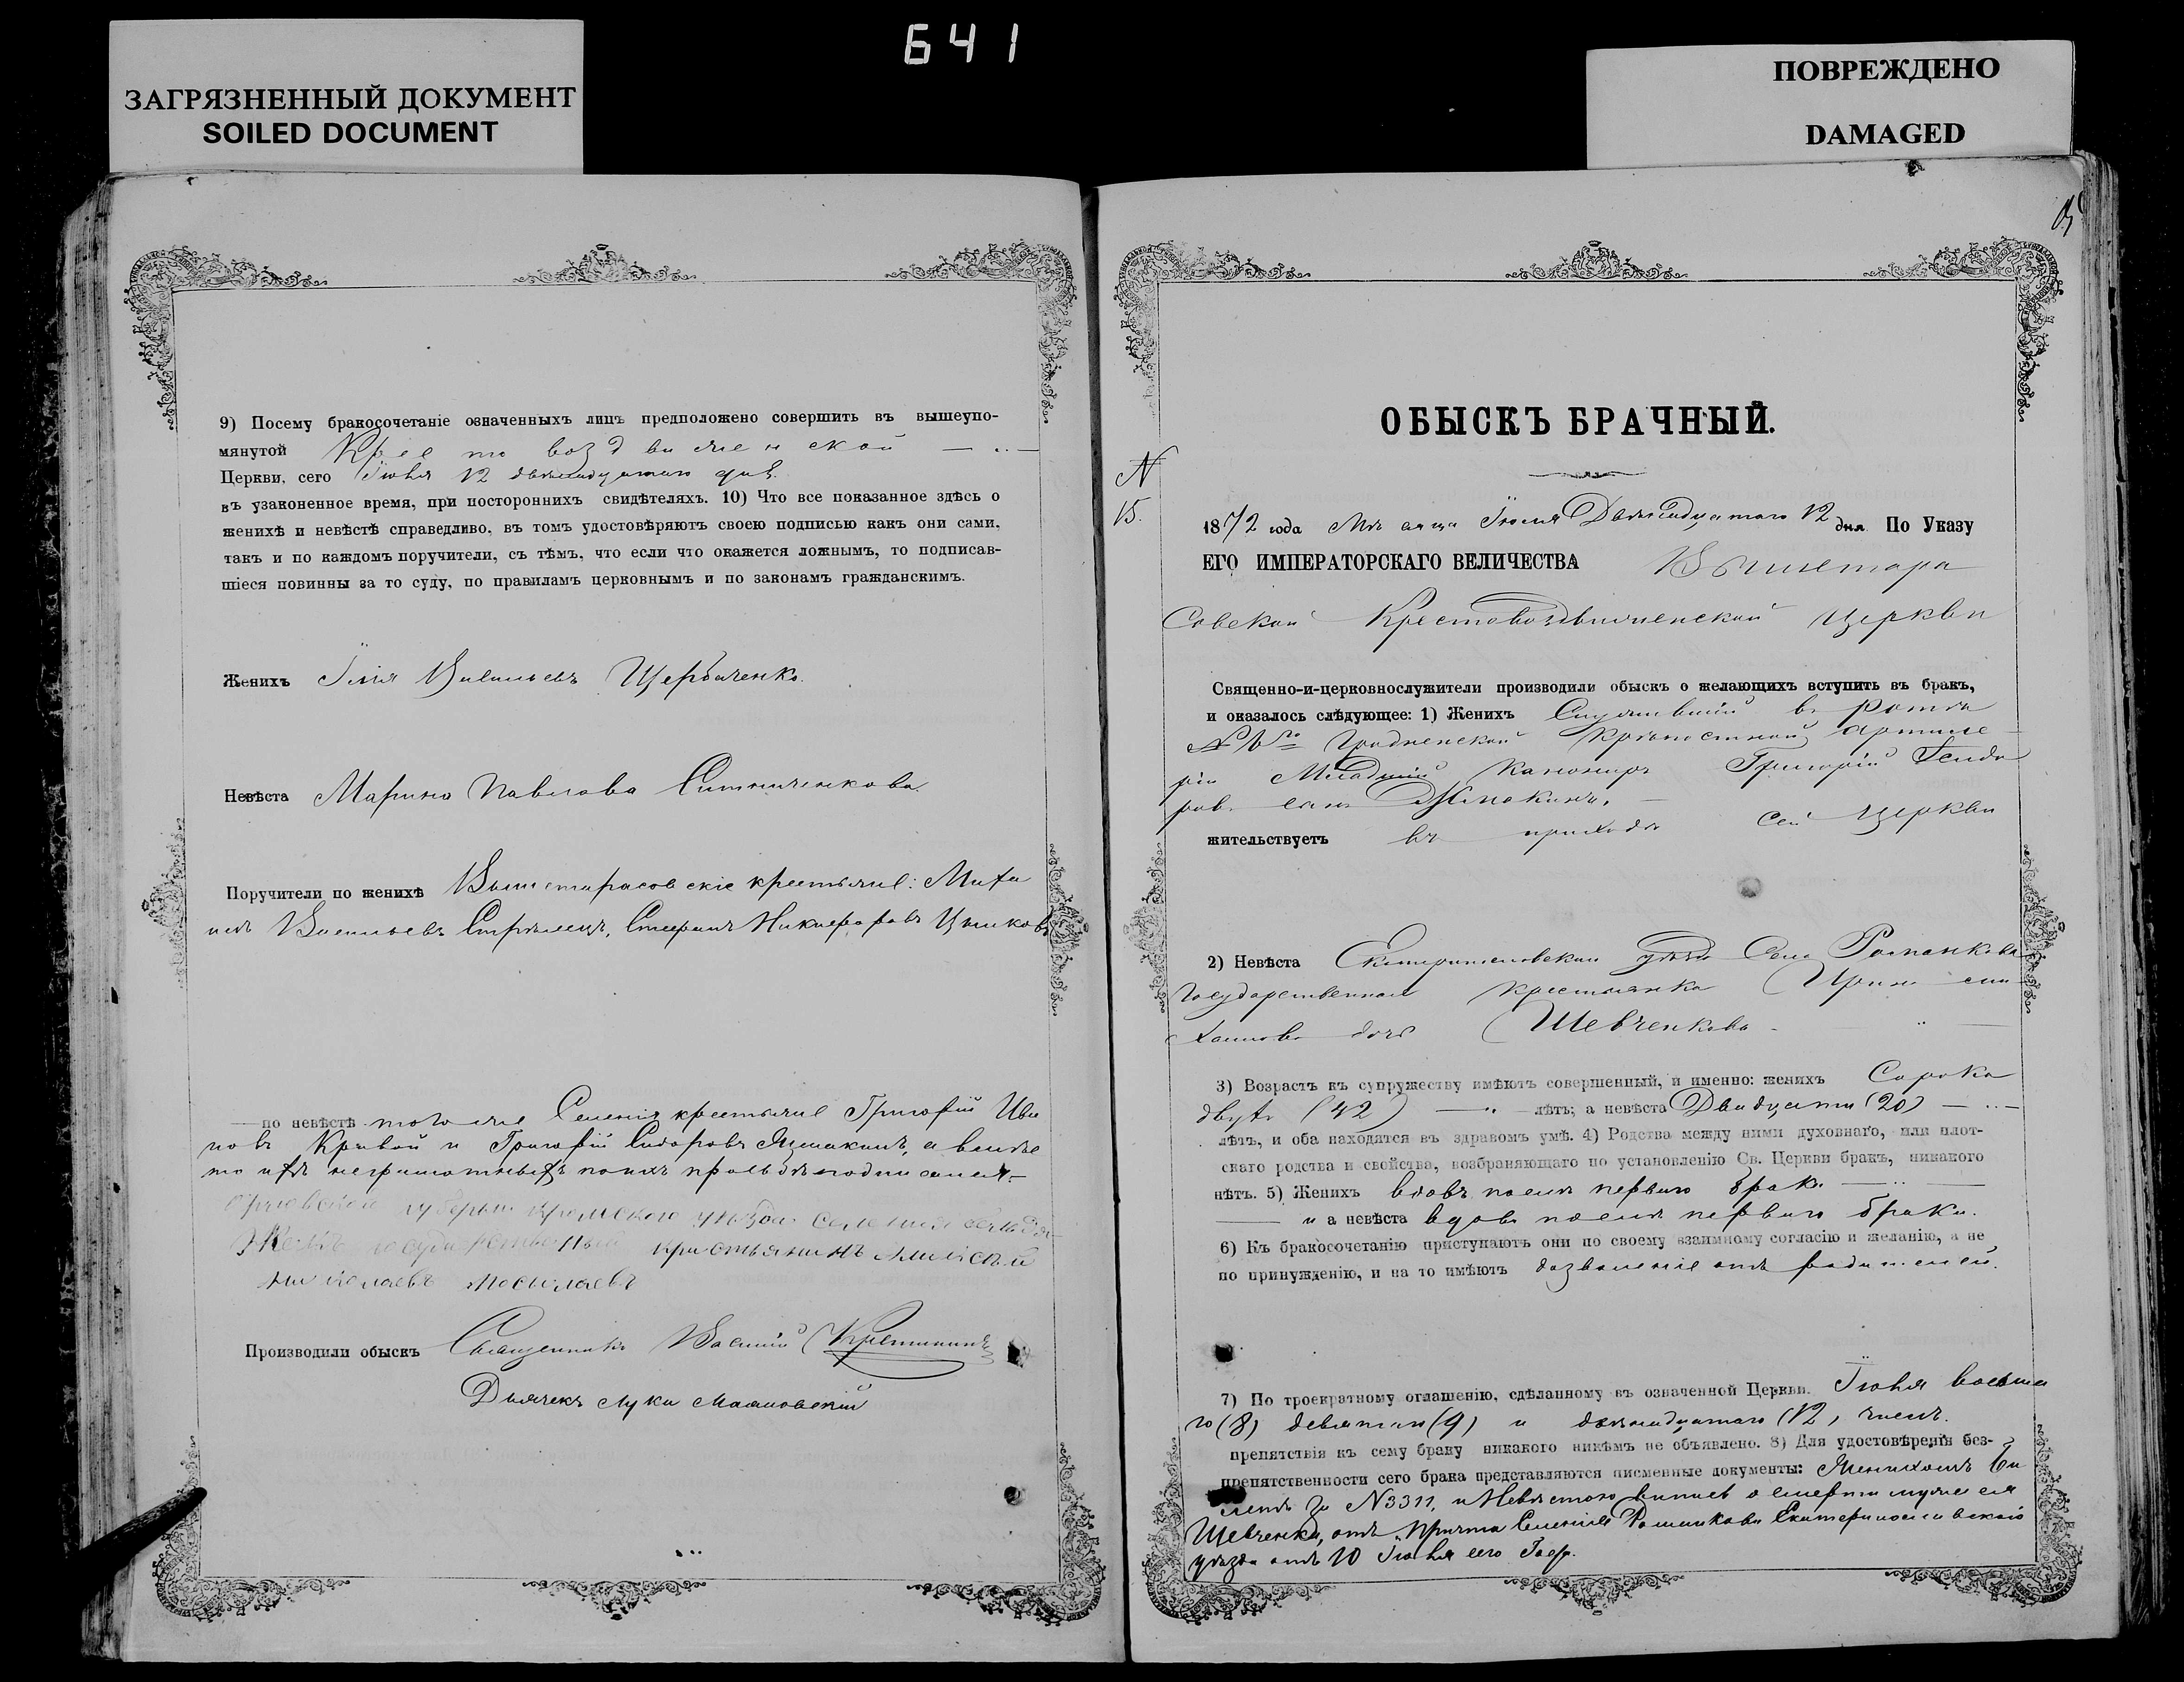 641
ЗАГРЯЗНЕННЫЙ ДОКУМЕНТ
SOILED DOCUMENT
ПОВРЕЖДЕНО
DAMAGED
9) Посему бракосочетаніе означенныхъ лицъ предположено совершить въ вышеупо-
мянутой Кресто воздвиженской
Церкви, сего Іюня 12 двѣнадцатаго дня.
въ узаконенное время, при постороннихъ свидѣтеляхъ. 10) Что все показанное здѣсь о
женихѣ и невѣстѣ справедливо, въ томъ удостовѣряютъ своею подписью какъ они сами,
такъ и по каждомъ поручители, съ тѣмъ, что если что окажется ложнымъ, то подписав-
шіеся повинны за то суду, по правиламъ церковнымъ и по законамъ гражданскимъ.
Женихъ Илія Васильевъ Щербаченко.
Невѣста Марина Павлова Ситниченкова
Поручители по женихѣ Вышетарасовскіе крестьяне: Миха
илъ Васильевъ Стрѣлецъ, Стефанъ Никифоровъ
по невѣстѣ того же Селенія крестьяне Григорій Ива
новъ Кривой и Григорій Сидоровъ а вмѣс
то ихъ неграмотныхъ по ихъ прозьбѣ подписался
Орловской губерніи Кромского уѣзда селения
государственный кристьянинъ Аликсѣй
Николаевъ
Производили обыскъ Священникъ Василій
Дьячекъ Лука
ОБЫСКЪ БРАЧНЫЙ.
N
15.
1872 года Мѣсяца Іюня Двѣнадцатаго 12 дня По Указу
ЕГО ИМПЕРАТОРСКАГО ВЕЛИЧЕСТВА Вышетара
совской Крестовоздвиженской церкви
Священно-и-церковнослужители производили обыскъ о желающихъ вступить въ бракъ,
и оказалось слѣдующее: 1) Женихъ Служившій въ ротѣ
Гродненской крѣпостной артиле
ріи Младшій Канониръ Григорій Сидо
ровъ сынъ
жительствуетъ въ приходѣ сей церкви
2) Невѣста уѣзда Села Романкова
Государственная крестьянка Ирина
дочь Шевченкова
3) Возрастъ къ супружеству имѣютъ совершенный, и именно: женихъ Сорока
двухъ (42) лѣтъ; а невѣста Двадцати (20)
лѣтъ, и оба находятся въ здравомъ умѣ. 4) Родства между ними духовнаго, или плот-
скаго родства и свойства, возбраняющаго по установленію Св. Церкви бракъ, никакого
нѣтъ. 5) Женихъ вдовъ послѣ перваго брака
и а невѣста вдова послѣ перваго брака.
6) Къ бракосочетанію приступаютъ они по своему взаимному согласію и желанію, а не
по принужденію, и на то имѣютъ дозволеніе отъ родителей.
7) По троекратному оглашенію, сдѣланному въ означенной Церкви. Іюня восьма
го (8) девятаго (9) и двѣнадцатаго (12) числъ.
препятствія къ сему браку никакого никѣмъ не объявлено. 8) Для удостовѣренія без-
препятственности сего брака представляются писменные документы: Женихомъ Би
летъ за N3311, и Невѣстою выпись о смерти мужа ея
Шевченка, отъ причта Селенія Романкова Екатеринославскаго
уѣзда отъ 10 Іюня сего Года.